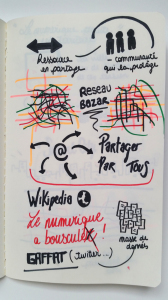 Ressource
en partage
- communauté
qui la protège
RESEAU
BAZAR
Partager
Par Tous
Wikipedia
Le numérique
a bousculé !
masse de
données
GAFFAT (twitter...)